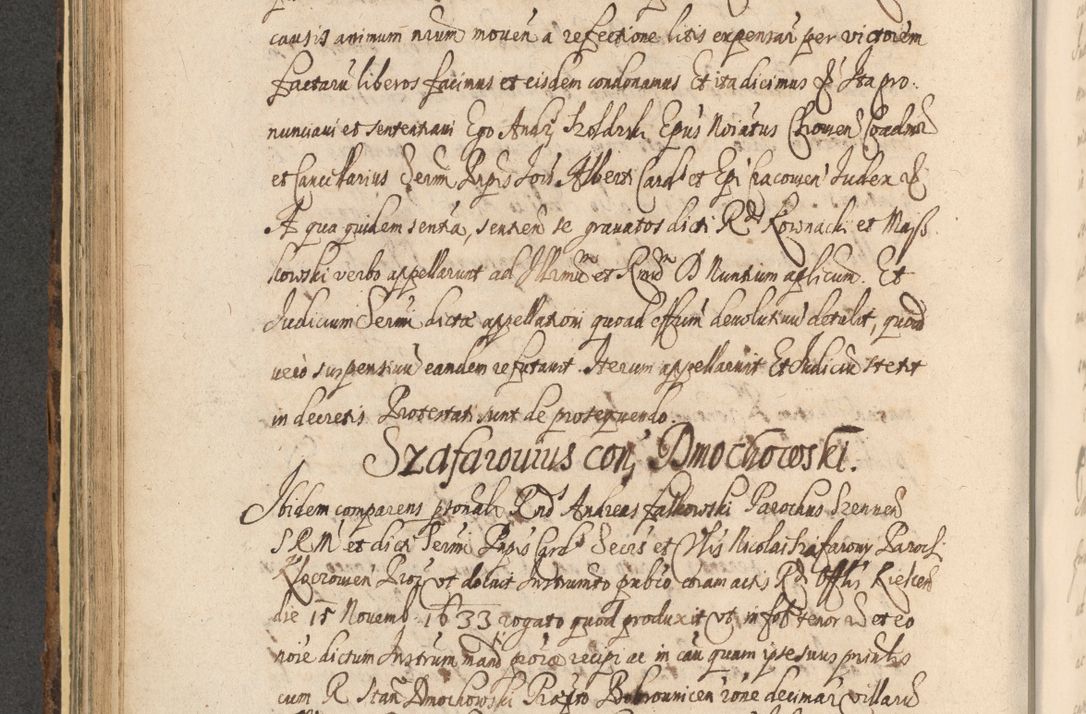 causis animum nrum moven̄ a refectione litis expensar̄ per victorem
factarū liberos facimus et eisdem condonamus Et ita dicimus & Ita pro:
nunciavi et sententiavi Ego Andr: Szoldrski Ep̄us Noīatus Coadiut̄
et Cancellarius Serm̄i Pn̄pis Joīs Alberti Card: et Ep̄i Cracovien̄ Judex &
A qua quidem sentīa, senten̄ se gravatos dicti Rd̄i Kownacki et Mass
kowski verbo appellarunt ad Illrmū et Rm̄d D Nuntium ap̄licum. Et
Judicium Serm̄i dictæ appellationi quoad effum̄ devolutivū detulit, quod
vero suspensivū eandem refutavit. Iterum appellavit Et Judiciū stetit
in decretis Protestati sunt de prosequendo.
Szafarovius con: Dmochowski.
Ibidem comparens p̄sonalr Rnd̄s Andreas Falkowski Parochus
S R M et dicti Serm̄i Pn̄pis Card: Secr̄s et Vn̄lis Nicolai Szafarowy Paroch
Procr̄ ut docuit Instrumto pubco etiam actis Rd̄i Offlis Kielcen̄
die 15 Novemb 1633 rogato quod produxit et in fol tenor et eo
noīe dictum Instrum mand recipi ac in cāu quam ipse suus prin̄lis
cum R Stan̄ Dmochowski Præp̄to Bobrownicen̄ r̄one decimar̄ villarū